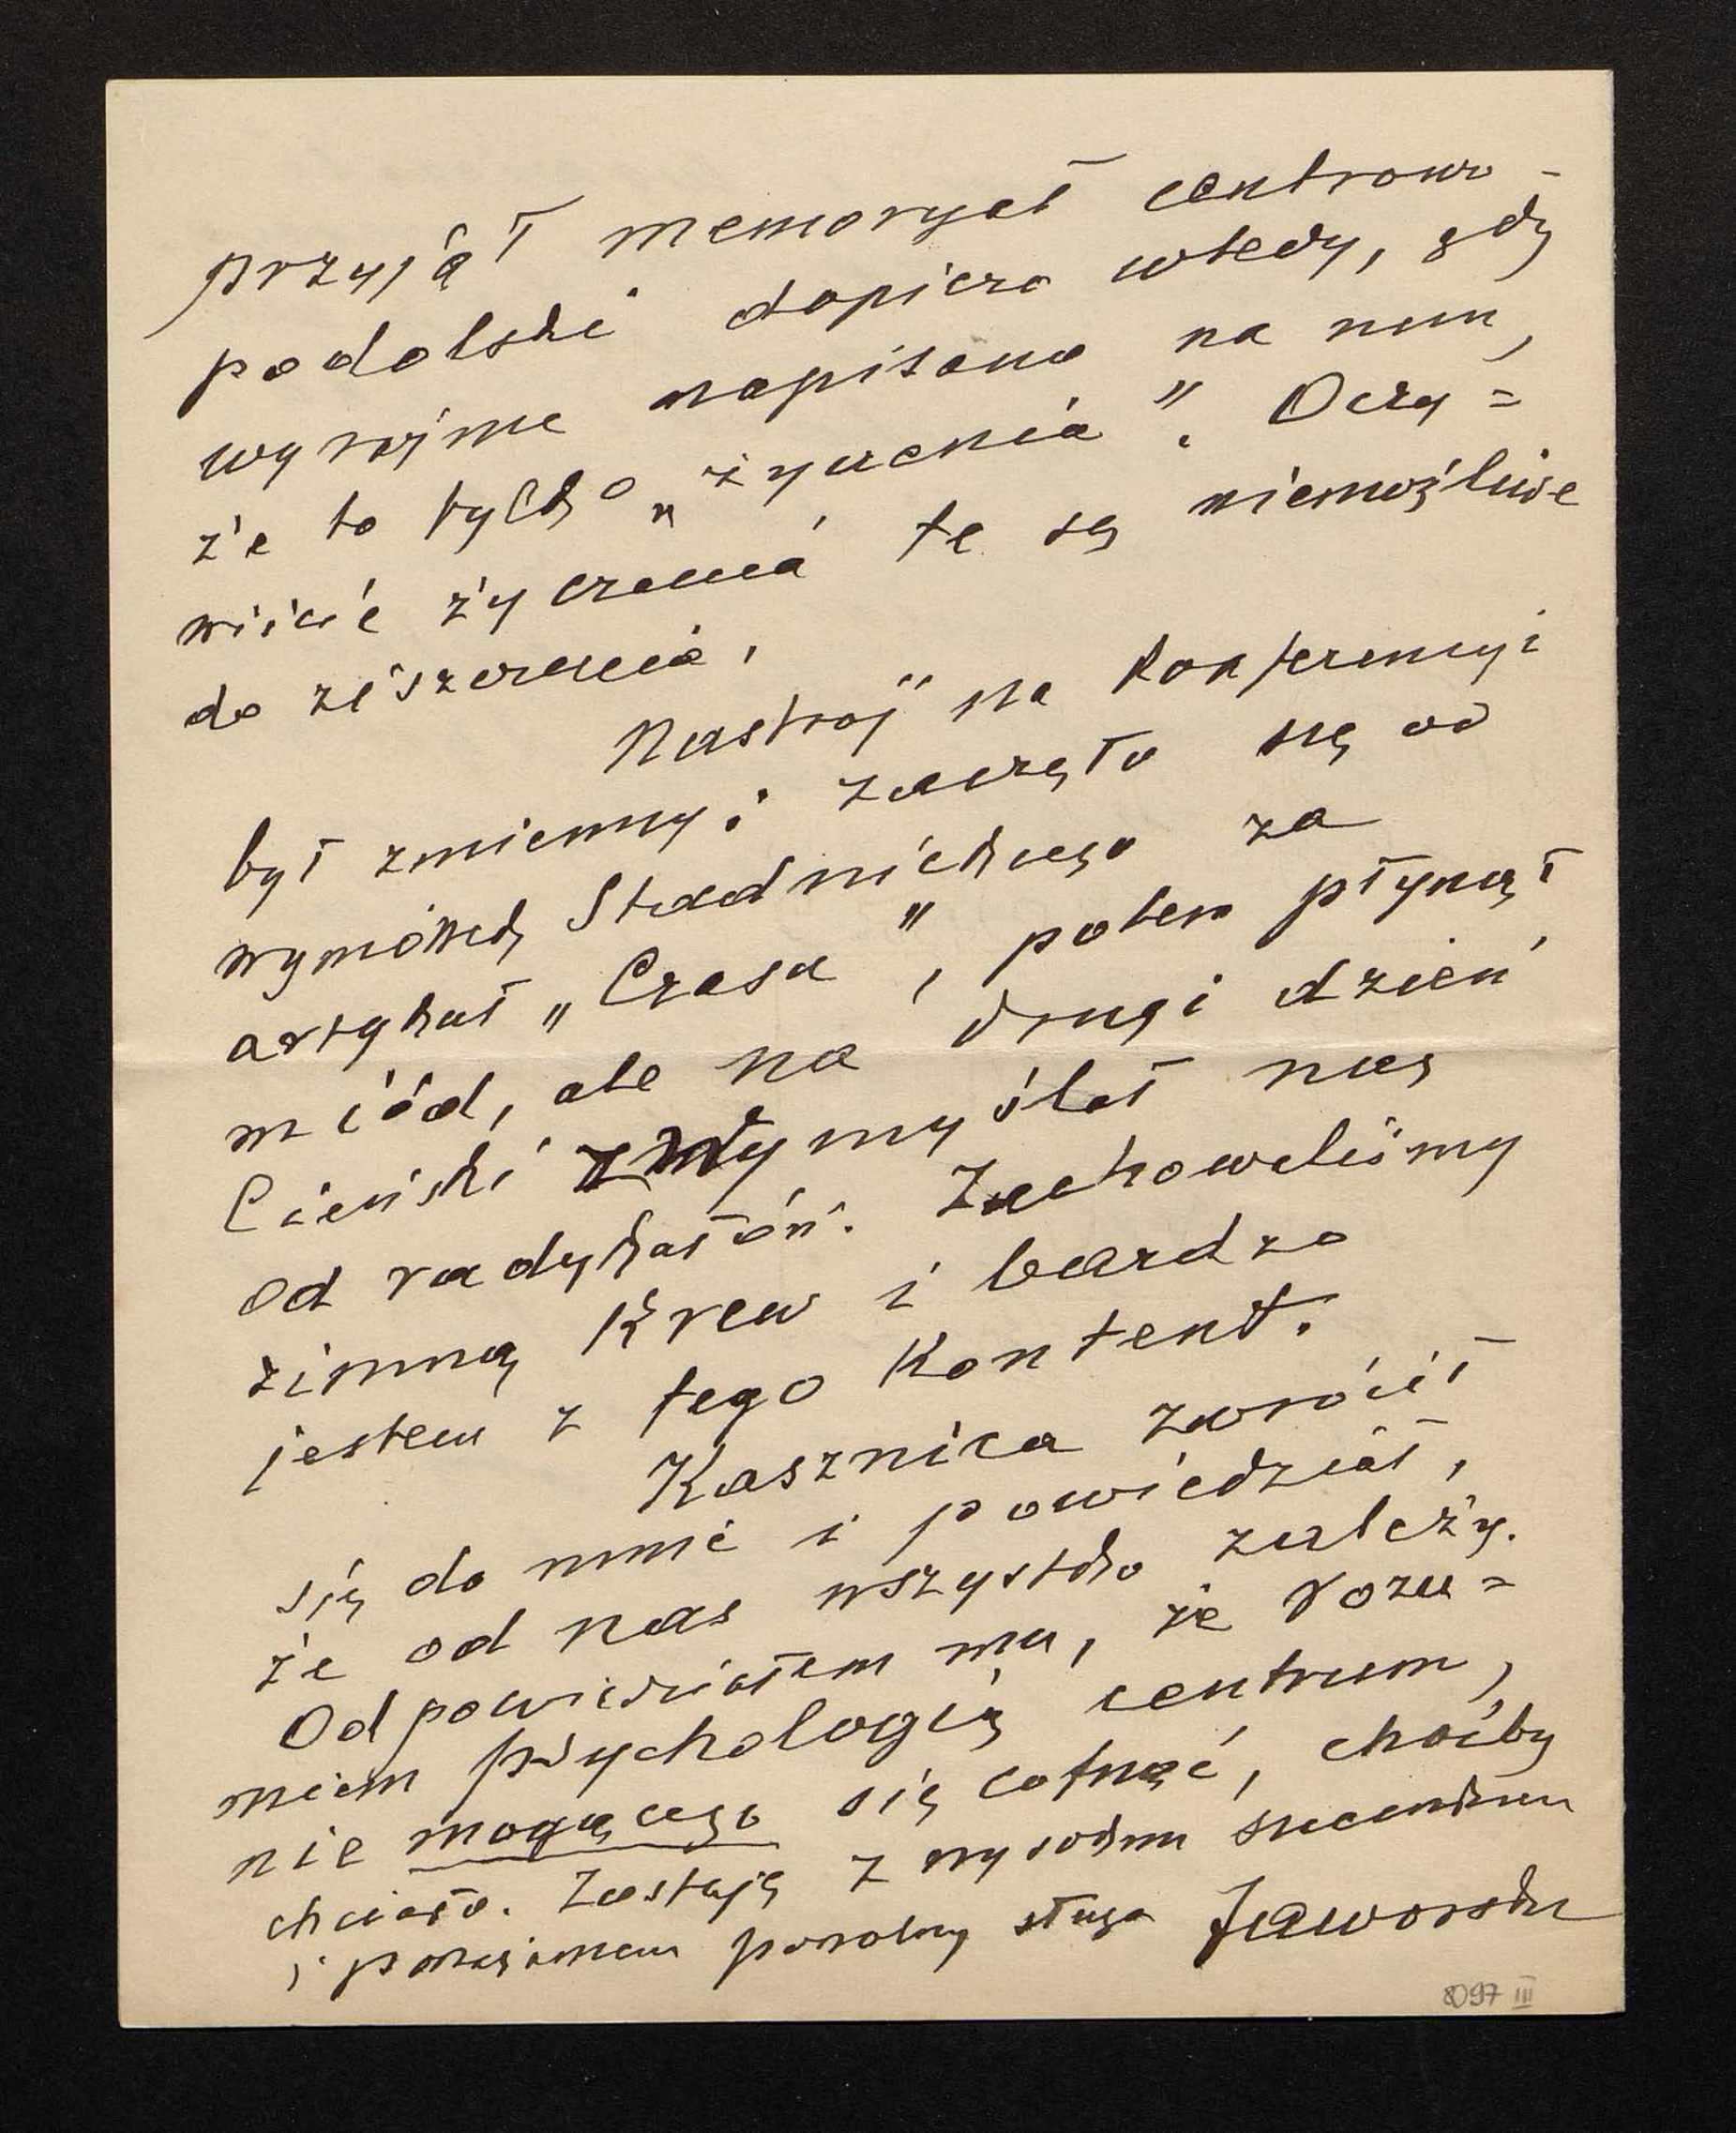 przyjął memoryał centrowo-
podolski dopiero wtedy, gdy
wyraźnie napisano na nim,
że to tylko „życzenia". Oczy=
wiście życzenia te są niemożliwe
do ziszczenia.
Nastrój na konferencyi
był zmienny: zaczęło się od
wymówek Stadnickiego za
artykuł „Czasu", potem płynął
miód, ale na drugi dzień,
Cieński zwymyślał nas
od radykałów. Zachowaliśmy
zimną krew i bardzo
jestem z tego kontent.
Kasznica zwrócił
się do mnie i powiedział,
że od nas wszystko zależy.
Odpowiedziałem mu, że rozu=
miem psychologię centrum,
nie mogącego się cofnąć, choćby
chciało. Zostaję z wysokim szacunkiem
i poważaniem powolny sługa Jaworski
8097 III